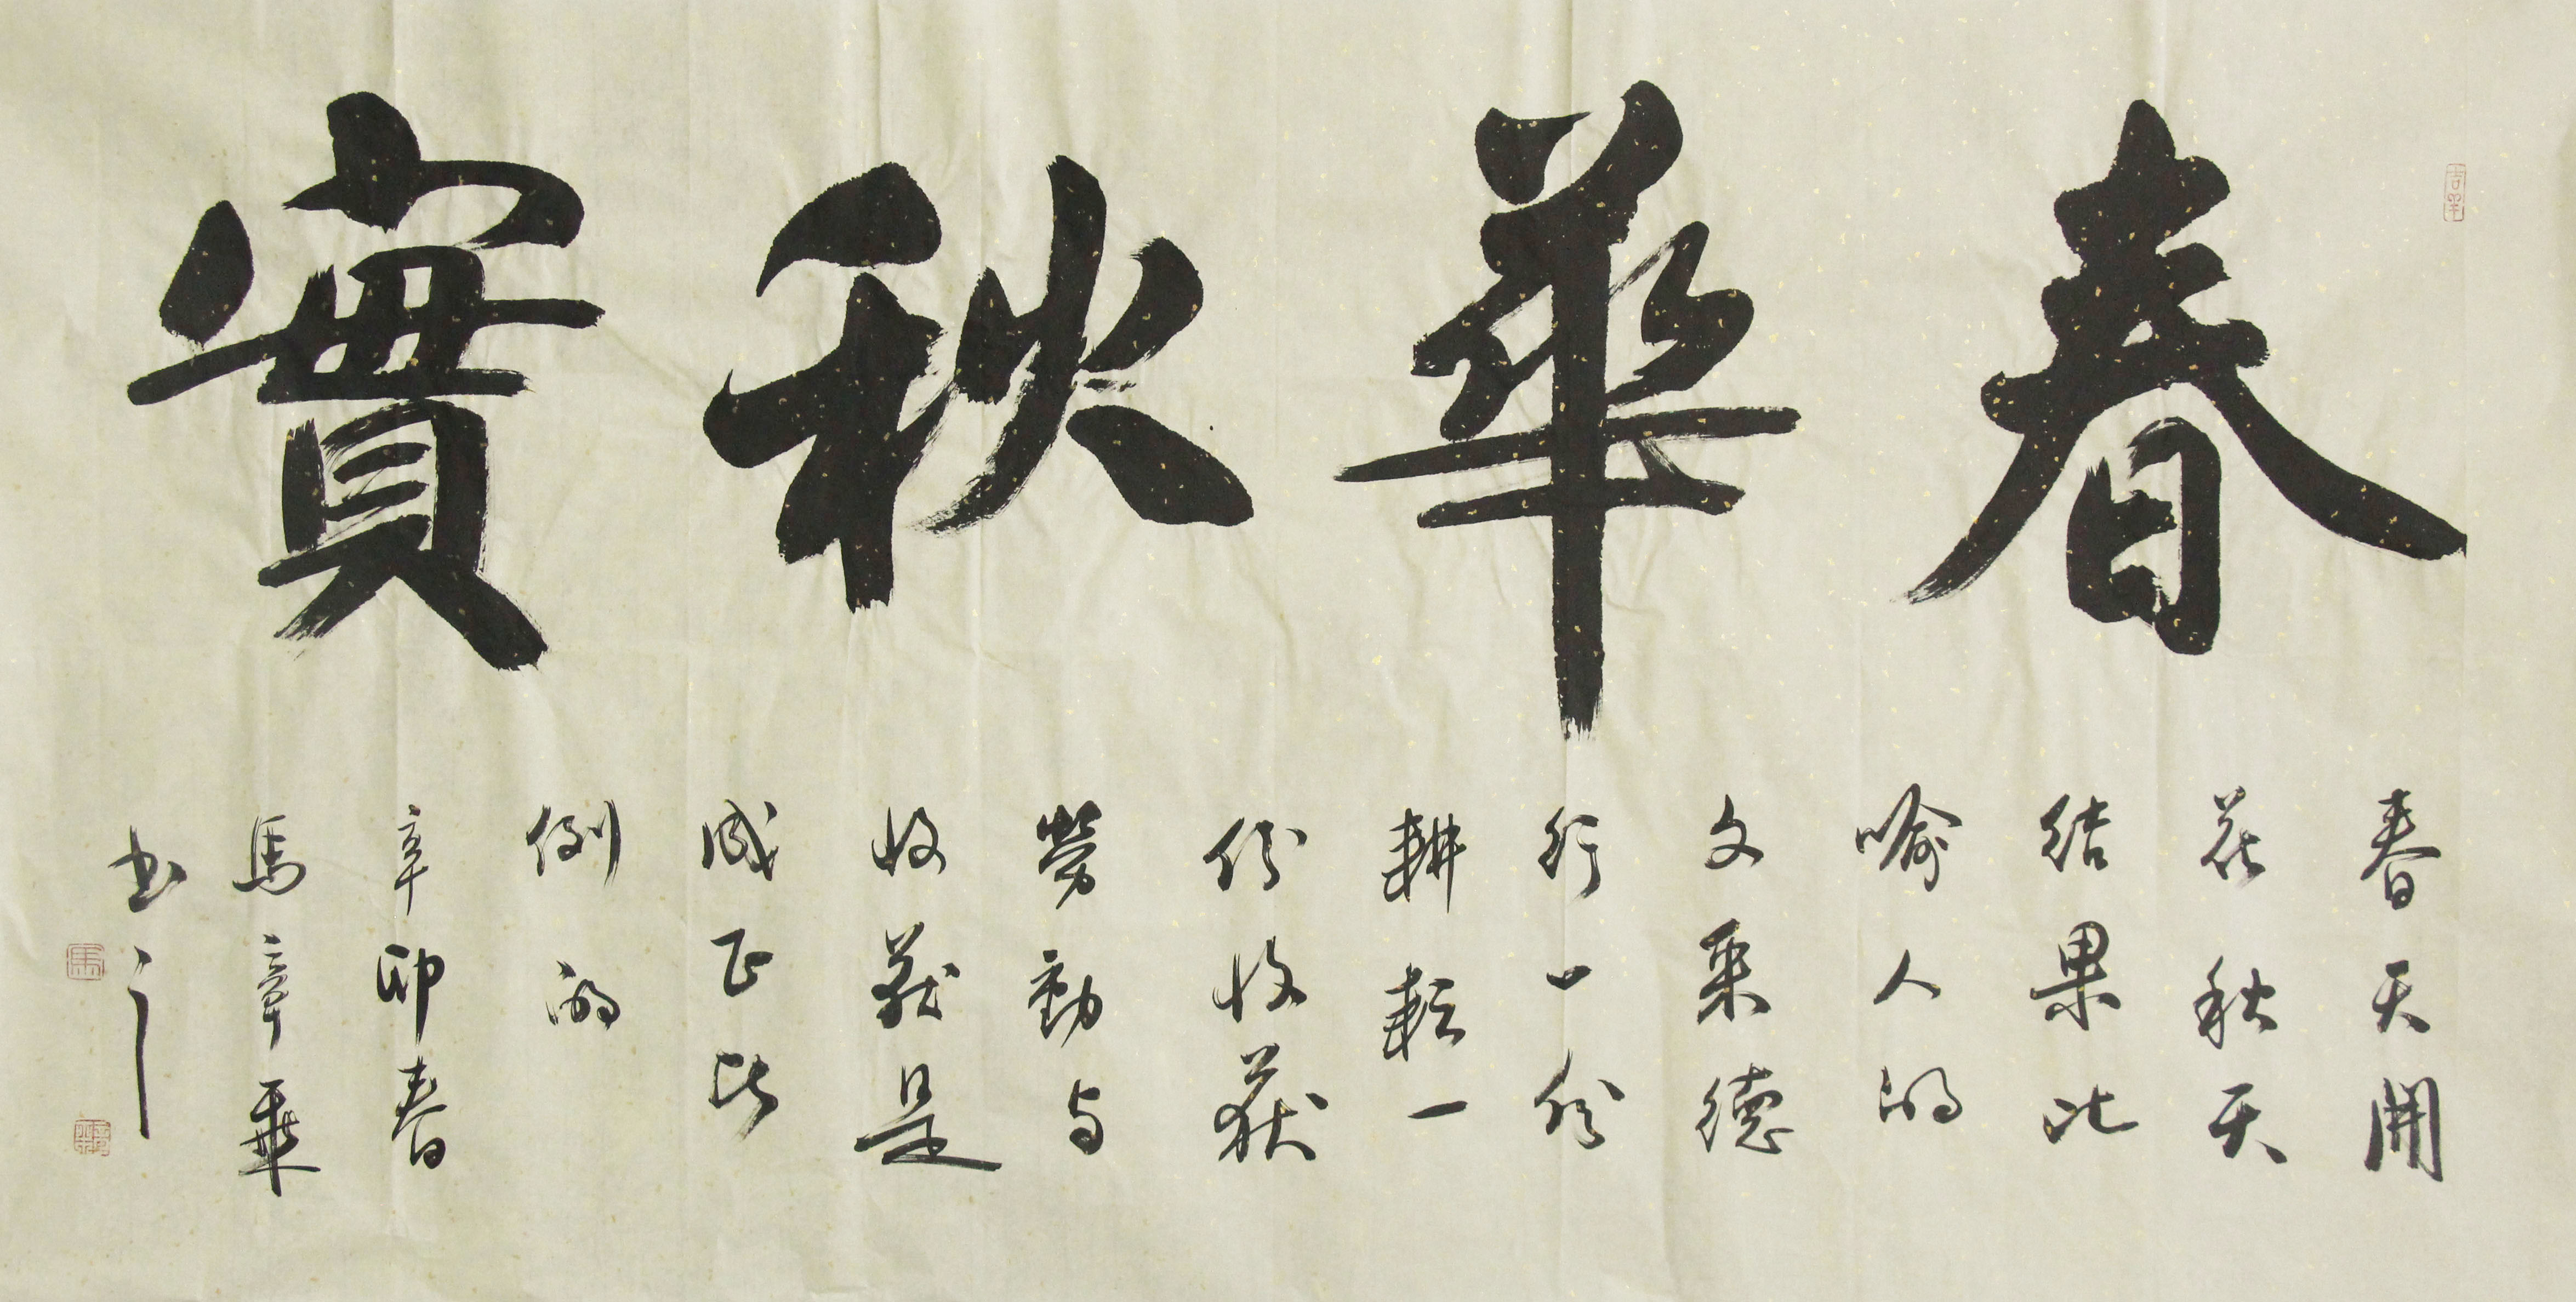 春華秋實
春天開
花秋天
结果比
喻人的
文采德
行一份
耕耘一
份收获
勞動与
收获是
成正比
例的
辛卯春
馬章乘
书之